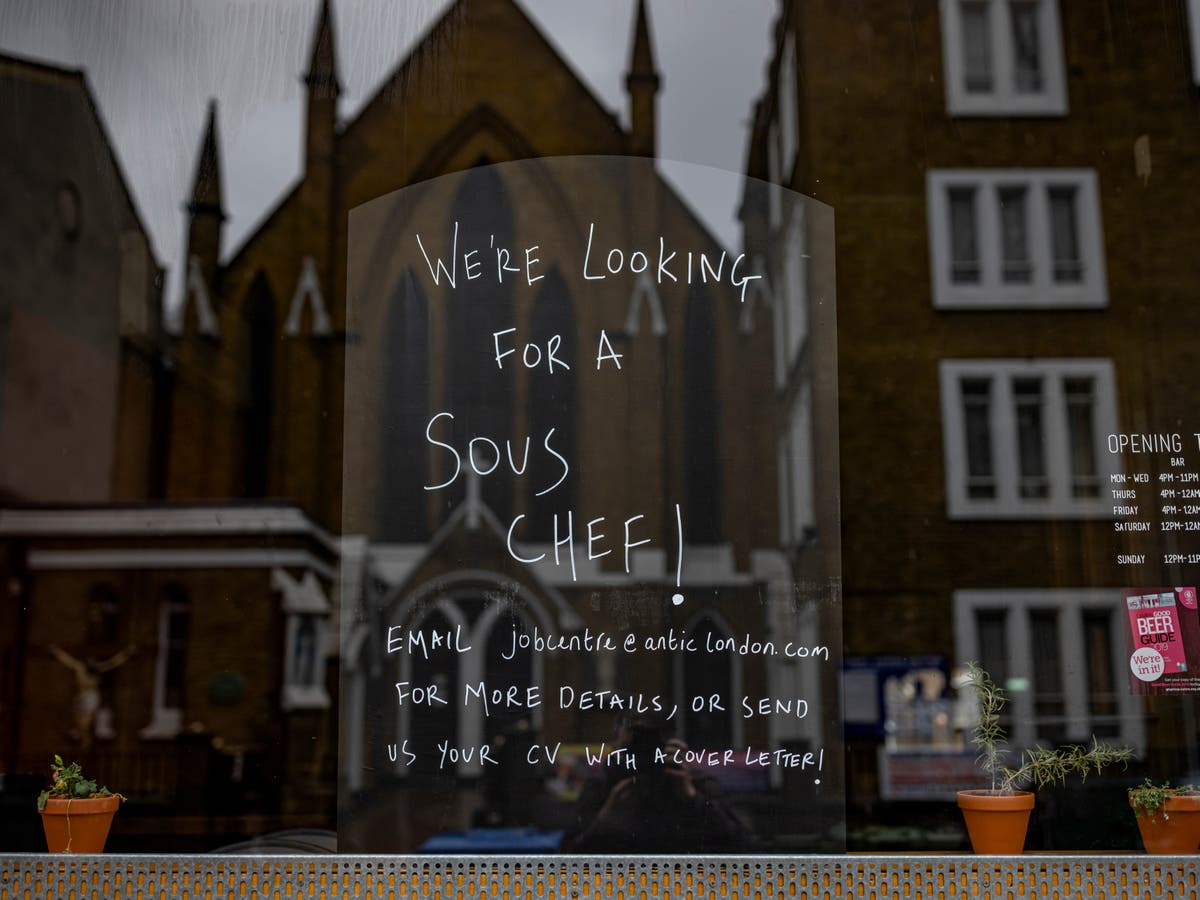 WE'RE LOOKING
FOR A
SOUS
CHEF!
EMAIL jobcentre@anticlondon.com
FOR MORE DETAILS, OR SEND
US YOUR CV WITH A COVER LETTER!
OPENING T
BAR
MON - WED 4PM -11PM
THURS 4PM -12AM
FRIDAY 4PM -12AM
SATURDAY 12PM-12AM
SUNDAY 12PM-11P
GOOD
BEER
GUIDE
2019
We're
in it!